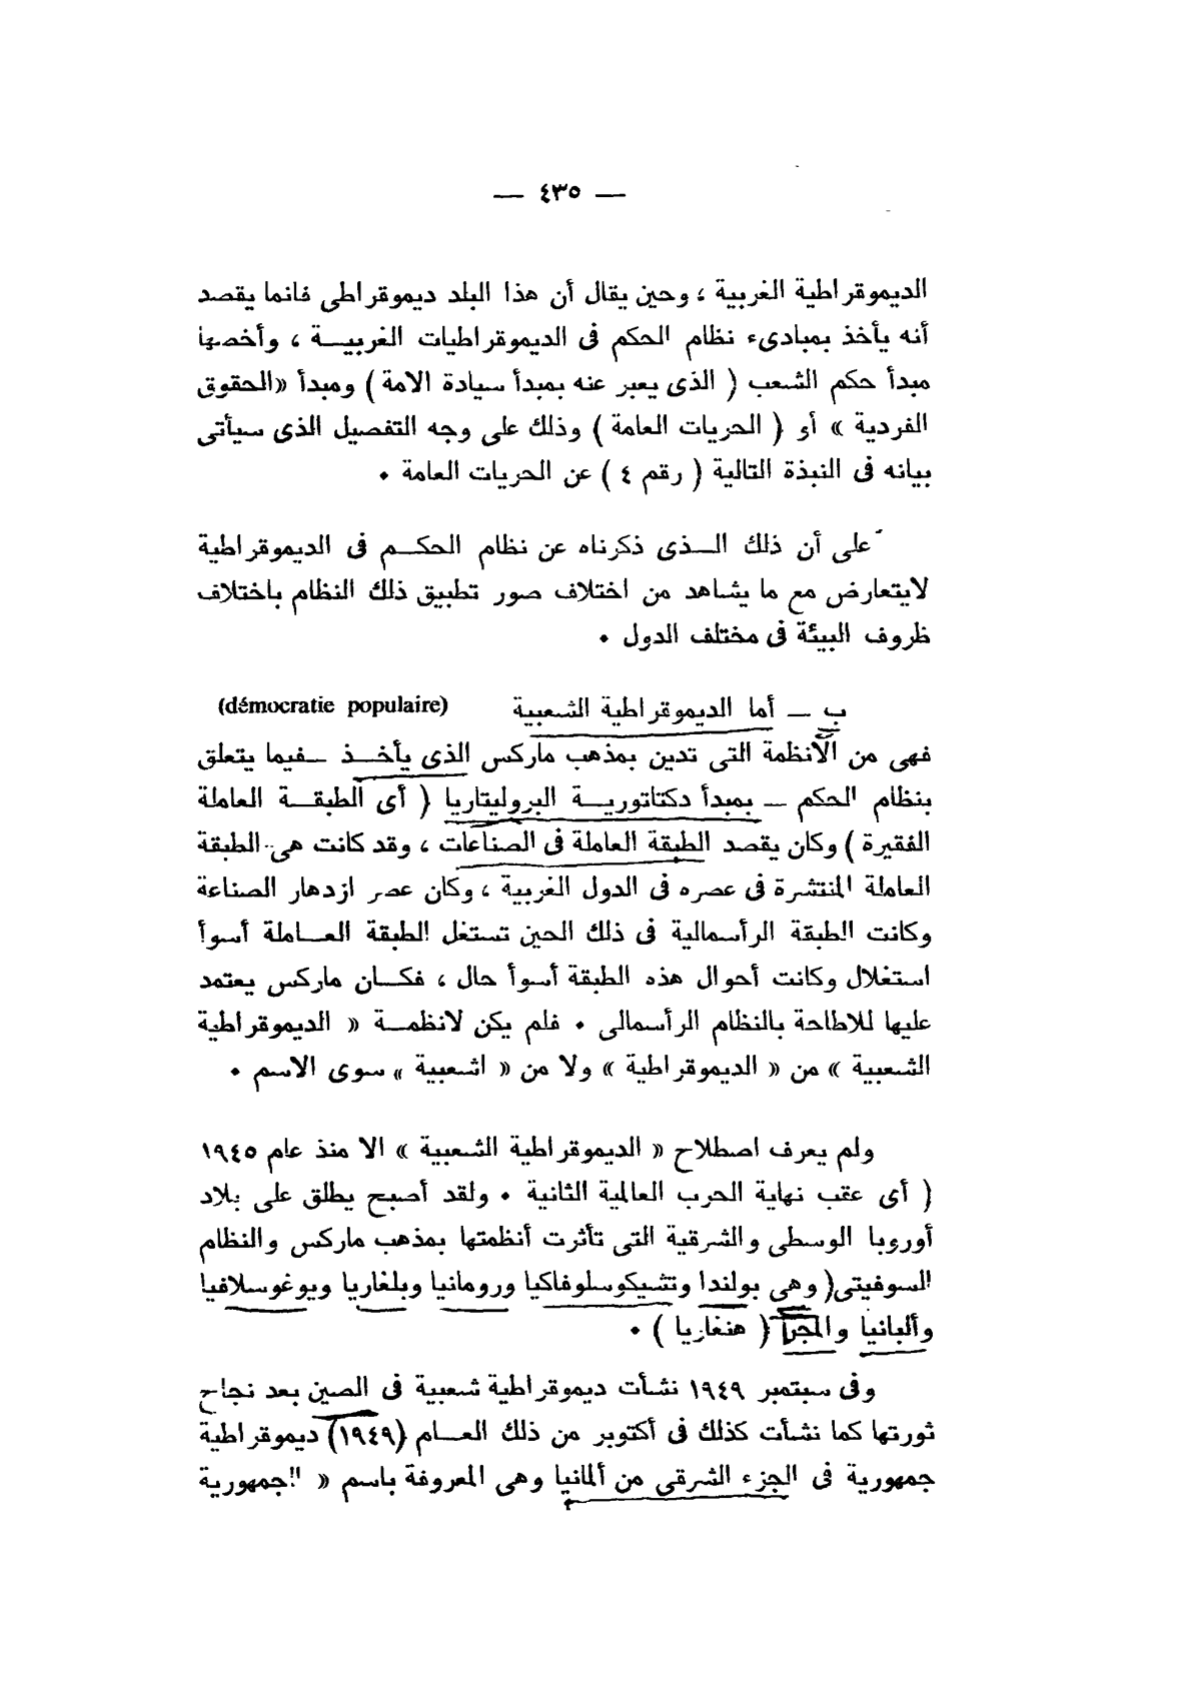 — ٤٣٥ —
الديموقراطية الغربية ، وحين يقال أن هذا البلد ديموقراطى فانما يقصد
أنه يأخذ بمبادىء نظام الحكم فى الديموقراطيات الغربيـــة ، وأخصها
مبدأ حكم الشعب ( الذى يعبر عنه بمبدأ سيادة الامة ) ومبدأ «الحقوق
الفردية » أو ( الحريات العامة ) وذلك على وجه التفصيل الذى سيأتى
بيانه فى النبذة التالية ( رقم ٤ ) عن الحريات العامة •
على أن ذلك الـــذى ذكرناه عن نظام الحكـــم فى الديموقراطية
لايتعارض مع ما يشاهد من اختلاف صور تطبيق ذلك النظام باختلاف
ظروف البيئة فى مختلف الدول •
ب — أما الديموقراطية الشعبية (démocratie populaire)
فهى من الأنظمة التى تدين بمذهب ماركس الذى يأخـــذ —فيما يتعلق
بنظام الحكم — بمبدأ دكتاتوريـــة البروليتاريا ( أى الطبقـــة العاملة
الفقيرة ) وكان يقصد الطبقة العاملة فى الصناعات ، وقد كانت هى الطبقة
العاملة المنتشرة فى عصره فى الدول الغربية ، وكان عصر ازدهار الصناعة
وكانت الطبقة الرأسمالية فى ذلك الحين تستغل الطبقة العـــاملة أسوأ
استغلال وكانت أحوال هذه الطبقة أسوأ حال ، فكـــان ماركس يعتمد
عليها للاطاحة بالنظام الرأسمالى • فلم يكن لانظمـــة « الديموقراطية
الشعبية » من « الديموقراطية » ولا من « اشعبية » سوى الاسم •
ولم يعرف اصطلاح « الديموقراطية الشعبية » الا منذ عام ١٩٤٥
( أى عقب نهاية الحرب العالمية الثانية • ولقد أصبح يطلق على بلاد
أوروبا الوسطى والشرقية التى تأثرت أنظمتها بمذهب ماركس والنظام
السوفيتى( وهى بولندا وتشيكوسلوفاكيا ورومانيا وبلغاريا ويوغوسلافيا
وألبانيا والمجر ( هنغاريا ) •
وفى سبتمبر ١٩٤٩ نشأت ديموقراطية شعبية فى الصين بعد نجاح
ثورتها كما نشأت كذلك فى أكتوبر من ذلك العـــام (١٩٤٩) ديموقراطية
جمهورية فى الجزء الشرقى من ألمانيا وهى المعروفة باسم « الجمهورية